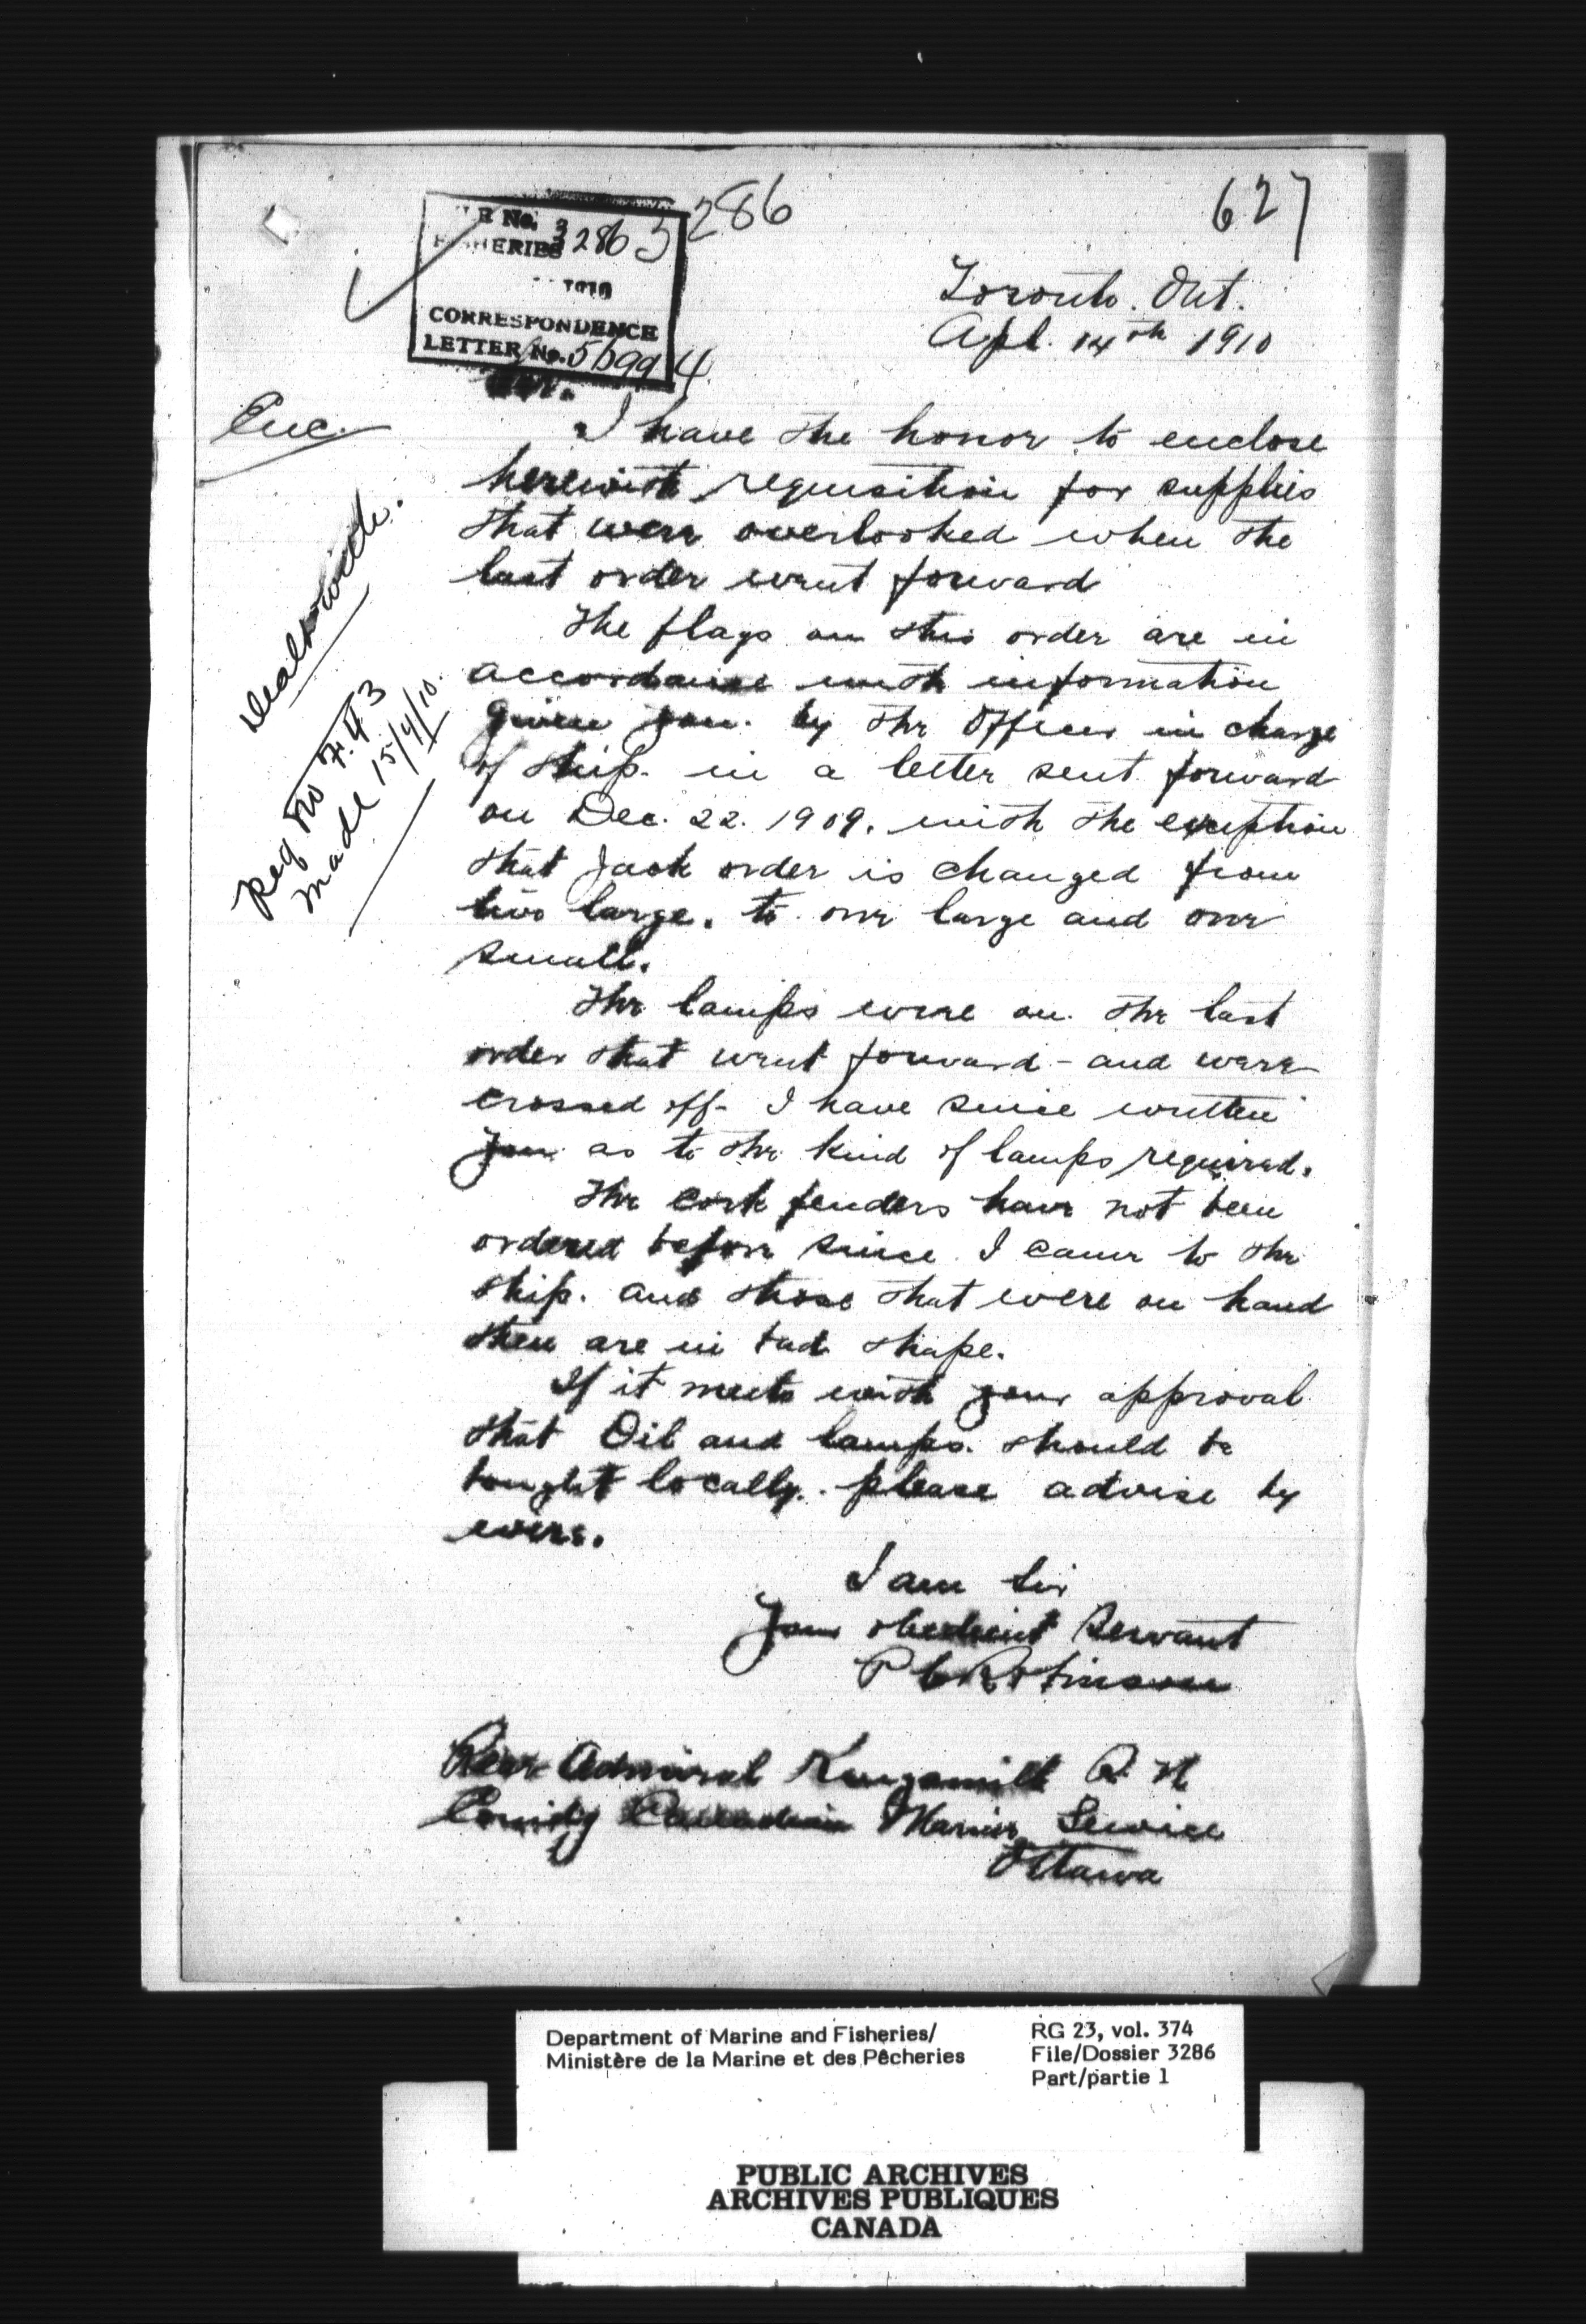 3286
627
FISHERIES 3286
1910
CORRESPONDENCE
LETTER No.
Toronto. Ont.
Apl. 14th 1910
Enc.
Sir.
I have the honor to enclose
herewith requisition for supplies
that were overlooked when the
last order went forward
The flags on this order are in
accordance with information
given you. by the Officer in charge
of ship. in a letter sent forward
on Dec. 22. 1909. with the exception
that Jack order is changed from
two large. to one large and one
small.
The lamps were on. the last
order that went forward - and were
crossed off - I have since written
you as to the kind of lamps required.
The cork fenders have not been
ordered before since I came to the
ship. and those that were on hand
then are in bad shape.
If it meets with your approval
that Oil and lamps. should be
bought locally. please advise by
wire.
I am Sir
Your obedient Servant
P C Robinson
Rear Admiral Kingsmill R. N
Comdg Canadian Marine Service
Ottawa
Dealt with.
Req No F.43
made 15/4/10.
Department of Marine and Fisheries/
Ministère de la Marine et des Pêcheries
RG 23, vol. 374
File/Dossier 3286
Part/partie 1
PUBLIC ARCHIVES
ARCHIVES PUBLIQUES
CANADA